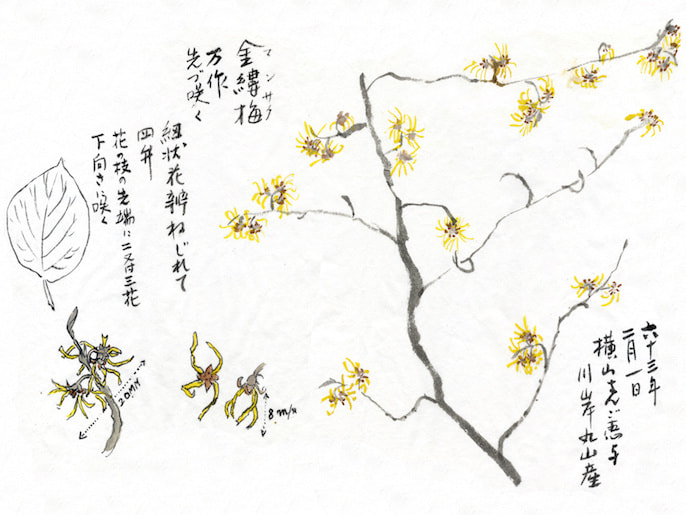 金縷梅
マンサク
万作
先づ咲く
細状花瓣ねじれて
四弁
花の枝の先端に二又は三花
下向きに咲く
20M/M
8.m/m
六十三年
二月一日
横山さんご恵与
川岸丸山産